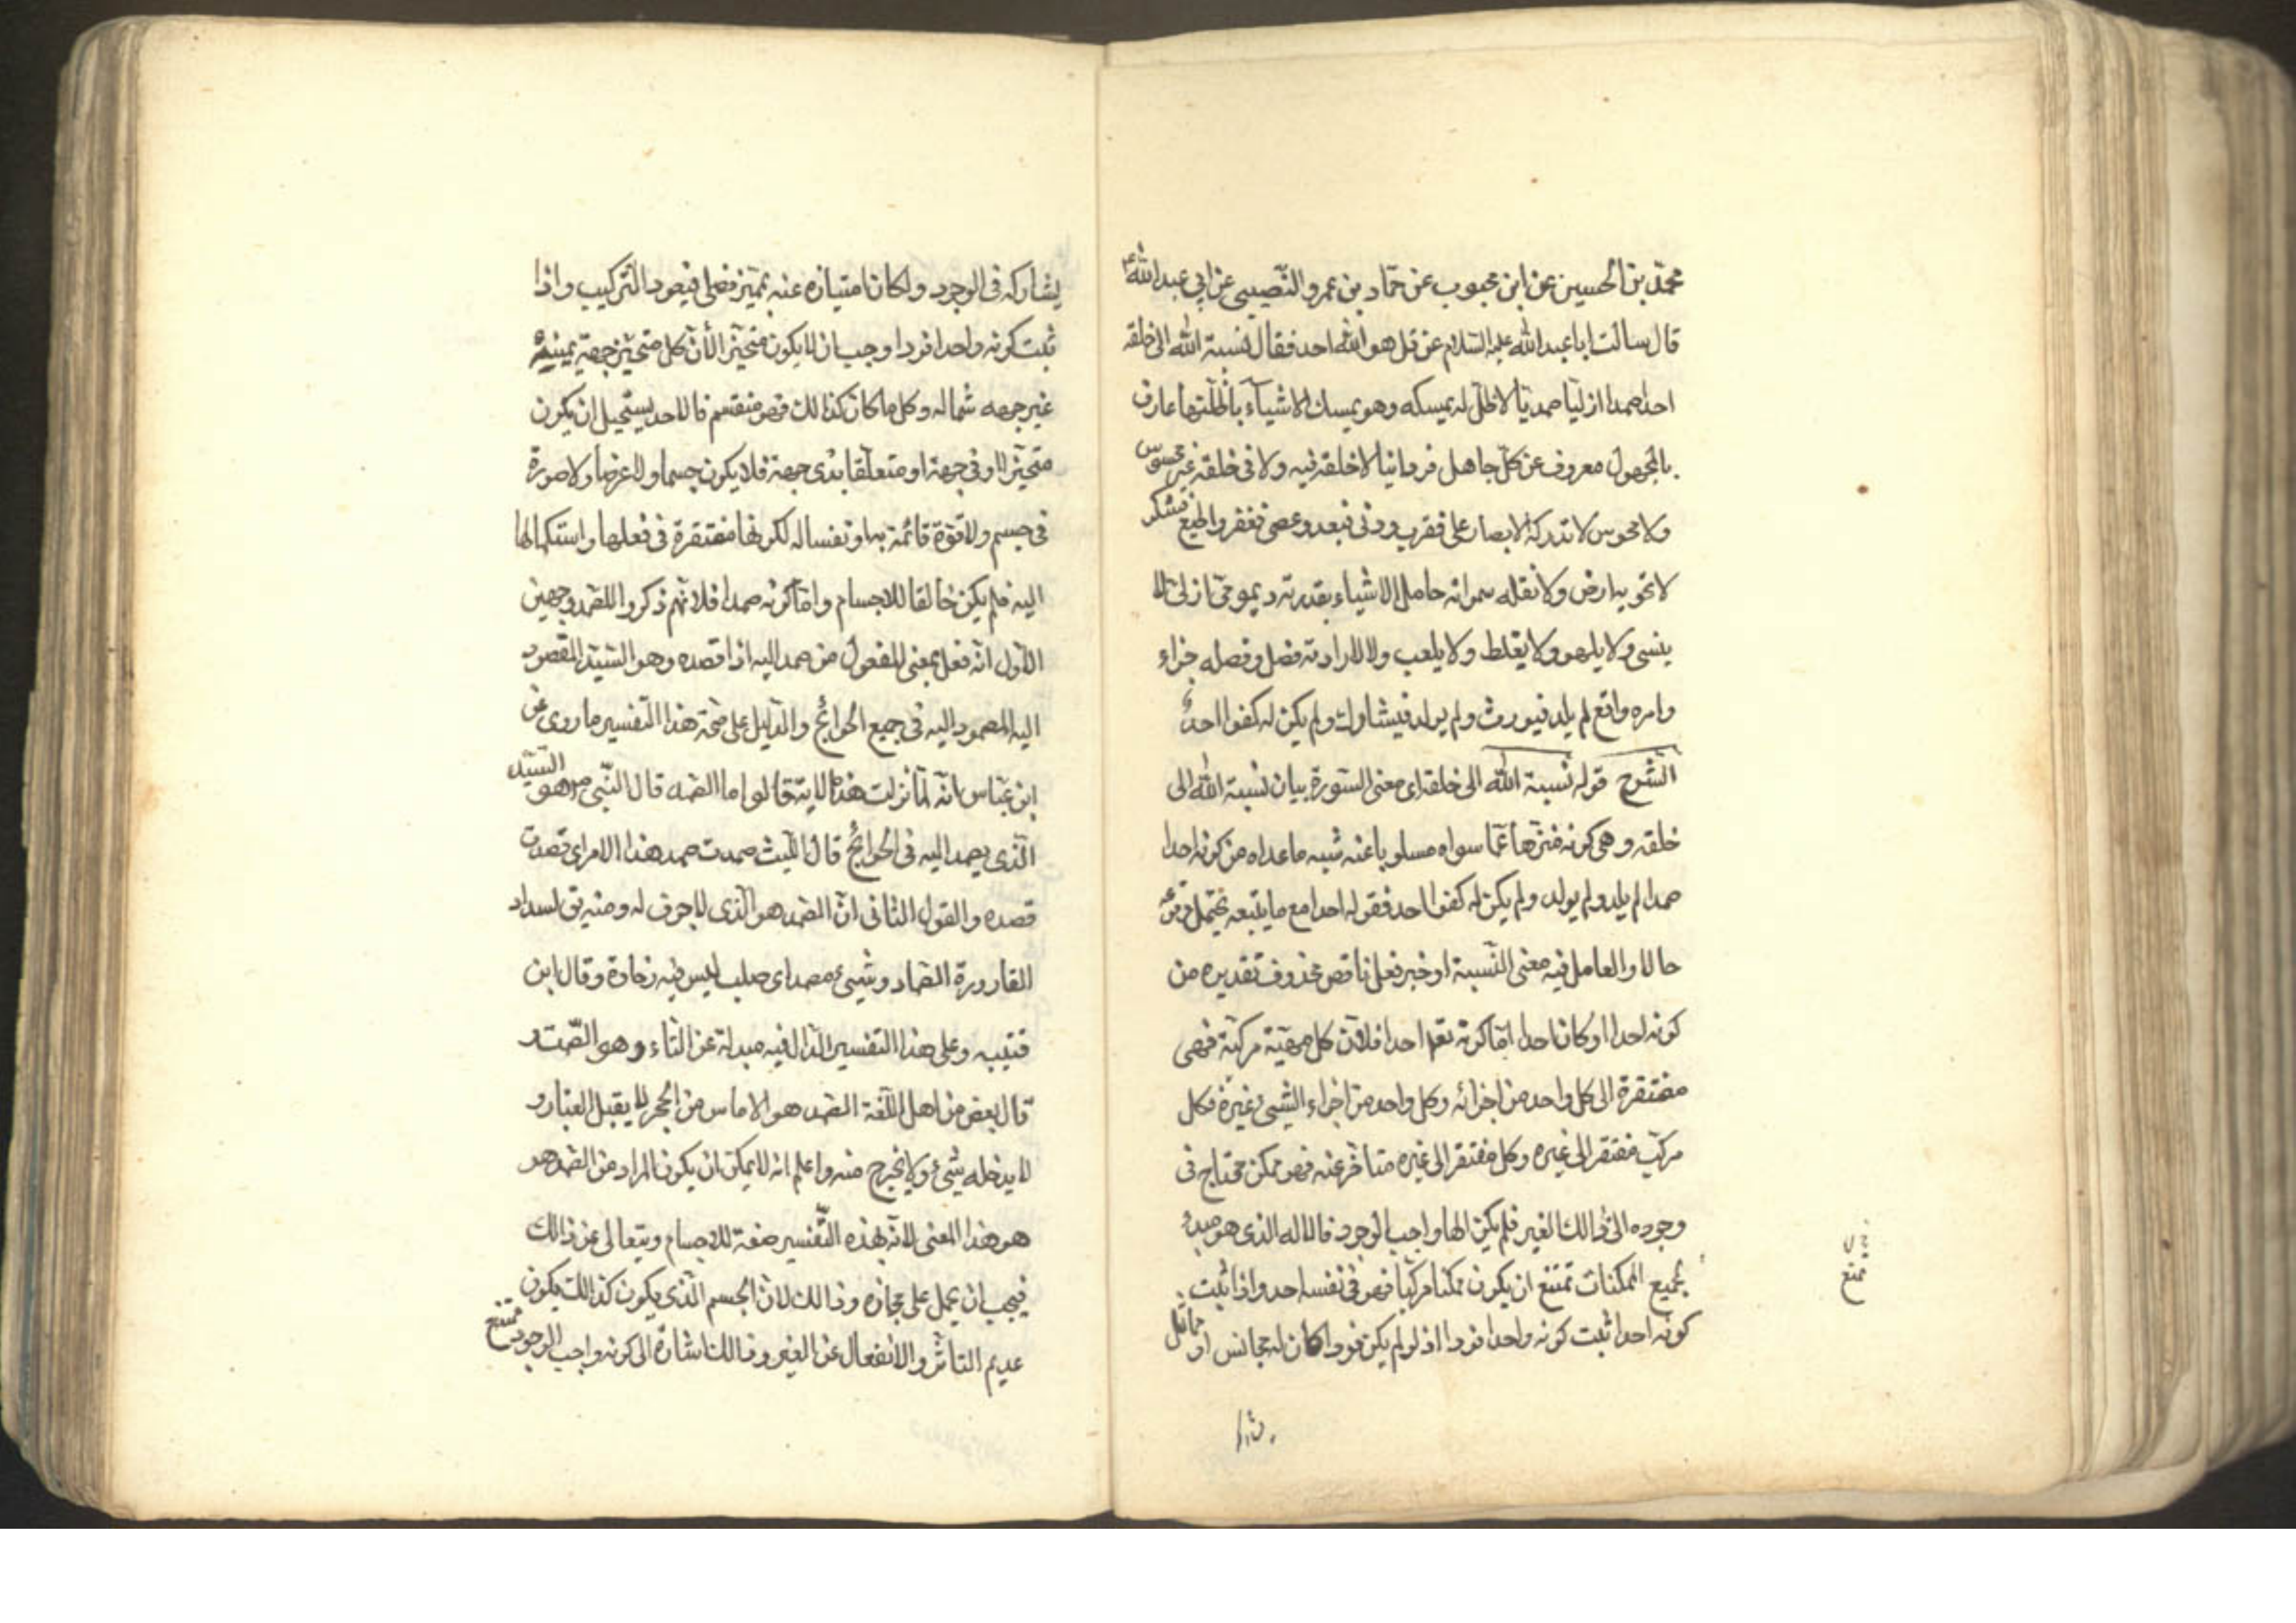 محمّد بن الحسين عن ابن محبوب عن حمّاد بن عمرو النّصيبى عن ابى عبد الله ع
قال سالت ابا عبد الله عليه السّلام عن قل هو الله احد فقال نسبة الله الى خلقه
احدا صمدا ازليّا صمديّا لا ظلّ له يمسكه وهو يمسك الاشياء باظلّتها عارف
بالمجهول معروف عند كلّ جاهل فردانيّا لا خلقه فيه ولا فى خلقه غير محسوس
ولا مجوس لا تدركه الابصار على فقرب ودنى فبعد وعصى فغفر واطيع فشكر
لا تحويه ارضه ولا تقله سمواته حامل الاشياء بقدرته ديمومى ازلى لا
ينسى ولا يلهو ولا يغلط ولا يلعب ولا لارادته فصل وفصله جزاء
وامره واقع لم يلد فيورث ولم يولد فيشارك ولم يكن له كفوا احد
الشّرح قوله نسبة الله الى خلقه اى معنى السّورة بيان نسبة الله الى
خلقه وهى كونه منزّها عمّا سواه مسلوبا عنه شبه ما عداه من كونه احدا
صمدا لم يلد ولم يولد ولم يكن له كفوا احد فقوله احدا مع ما يتبعه يحتمل
حالا والعامل فيه معنى النّسبة او خبر فعل ناقص محذوف تقديره من
كونه احدا او كان احدا امّا كونه تعم احدا فلانّ كل مهيّة مركّبة فهى
مفتقرة الى كل واحد من اجزائه وكل واحد من اجزاء الشيئ غيره فكل
مركّب مفتقر الى غيره وكل مفتقر الى غيره متاخّر عنه فهو ممكن محتاج فى
وجوده الى ذالك الغير فلم يكن الها واجب الوجود فالاله الذى هو مبدء
لجميع الممكنات تمتنع ان يكون ممكنا مركّبا فهو فى نفسه احد واذا ثبت
كونه احدا ثبت كونه واحدا فردا اذ لو لم يكن فردا لكان له مجانس او مماثل
يمتنع
يشاركه فى الوجود ولكان امتيازه عنه بمميّز فصلى فيعود التّركيب واذا
ثبت كونه واحدا فردا وجب ان لا يكون متحيّزا لأنّ كل متحيّز جهة يمينه
غير جهه شماله وكل ما كان كذالك فهو منقسم فالاحد يستحيل ان يكون
متحيّزا او فى جهة او متعلّقا بذى جهة فلا يكون جسما ولا عرضا ولا صورة
فى جسم ولا قوّة قائمة به او نفسا له لكونها مفتقرة فى فعلها واستكمالها
اليه فلم يكن خالقا للاجسام وامّا كونه صمدا فلانّهم ذكروا للصّمد وجهين
الاوّل انّه فعل بمعنى المفعول من صمد اليه اذا قصده وهو السّيّد المقصود
اليه المصمود اليه فى جميع الحوائج والدّليل على صحّة هذا التّفسير ما روى عن
ابن عبّاس انّه لمّا نزلت هذه الاية قالوا ما الصّمد قال النّبى ص هو السّيّد
الّذى يصمد اليه فى الحوائج قال اللّيث صمدت صمد هذا الامر اى قصدت
قصده والقول الثانى انّ الصّمد هو الّذى لا جوف له ومنه يق لسداد
القارورة الصّماد وشيئ مصمد اى صلب ليس فيه رخاوة وقال ابن
قتيبه وعلى هذا التفسير الدّال فيه مبدلة عن التاء وهو الصّمت
قال بعض من اهل اللّغة الصّمد هو الاملس من الحجر لا يقبل الغبار و
لا يدخله شيئ ولا يخرج منه واعلم انه لا يمكن ان يكون المراد من الصّمد هو
هو هذا المعنى لانّه بهذه التّفسير صفة للاجسام ويتعالى عن ذالك
فيجب ان يحمل على مجازه وذالك لانّ الجسم الّذى يكون كذالك يكون
عديم التاثّر والانفعال عن الغير وذالك اشارة الى كونه واجب الوجود ممتنع